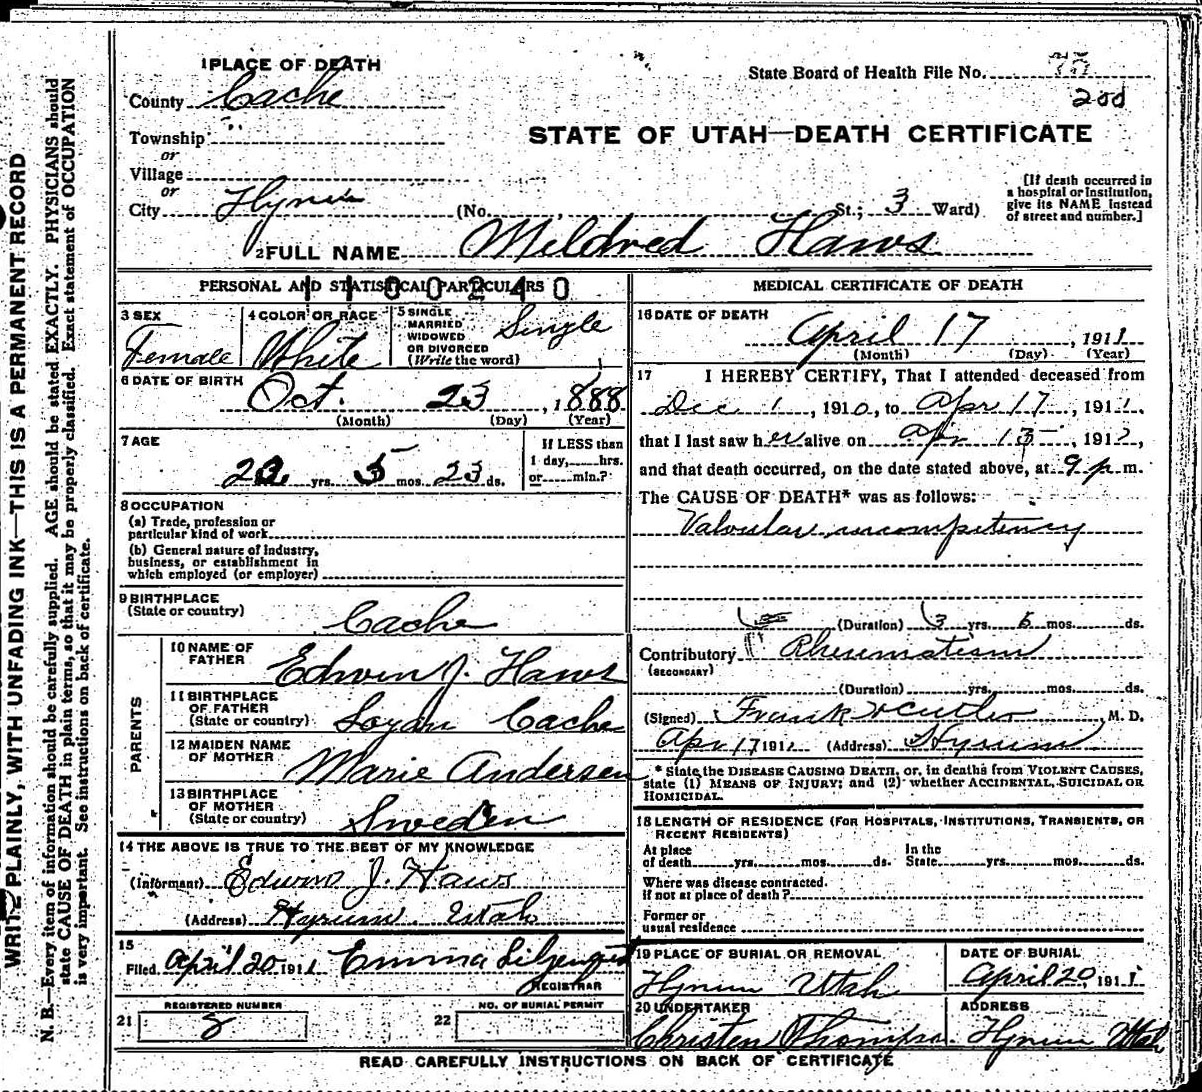 WRITE PLAINLY, WITH UNFADING INK—THIS IS A PERMANENT RECORD
N. B.—Every item of information should be carefully supplied. AGE should be stated EXACTLY. PHYSICIANS should
state CAUSE OF DEATH in plain terms, so that it may be properly classified. Exact statement of OCCUPATION
is very important. See instructions on back of certificate.
1 PLACE OF DEATH
County Cache
Township
or
Village
or
City Hyrum
State Board of Health File No.
200
STATE OF UTAH—DEATH CERTIFICATE
(No. , St.; 3 Ward)
[If death occurred in
a hospital or institution,
give its NAME instead
of street and number.]
2 FULL NAME Mildred Haws
1100240
PERSONAL AND STATISTICAL PARTICULARS
3 SEX
Female
4 COLOR OR RACE
White
5 SINGLE
MARRIED
WIDOWED
OR DIVORCED
(Write the word)
Single
6 DATE OF BIRTH
Oct. 23, 1888
(Month) (Day) (Year)
7 AGE
22 yrs. 5 mos. 23 ds.
If LESS than
1 day, hrs.
or min.?
8 OCCUPATION
(a) Trade, profession or
particular kind of work
(b) General nature of industry,
business, or establishment in
which employed (or employer)
9 BIRTHPLACE
(State or country)
Cache
PARENTS
10 NAME OF
FATHER
Edwin J. Haws
11 BIRTHPLACE
OF FATHER
(State or country)
Logan Cache
12 MAIDEN NAME
OF MOTHER
Marie Andersen
13 BIRTHPLACE
OF MOTHER
(State or country)
Sweden
14 THE ABOVE IS TRUE TO THE BEST OF MY KNOWLEDGE
(Informant) Edwin J. Haws
(Address) Hyrum Utah
15
Filed April 20 1911 Emma Liljenquist
REGISTRAR
REGISTERED NUMBER
21 8
NO. OF BURIAL PERMIT
22
MEDICAL CERTIFICATE OF DEATH
16 DATE OF DEATH
April 17, 1911
(Month) (Day) (Year)
17 I HEREBY CERTIFY, That I attended deceased from
Dec 1, 1910, to Apr 17, 1911,
that I last saw her alive on Apr 15, 1911,
and that death occurred, on the date stated above, at 9 p. m.
The CAUSE OF DEATH* was as follows:
Valvular incompetency
(Duration) 3 yrs. 6 mos. ds.
Contributory Rheumatism
(SECONDARY)
(Duration) yrs. mos. ds.
(Signed) Frank Cutler, M. D.
Apr 17 1911 (Address) Hyrum
* State the DISEASE CAUSING DEATH, or, in deaths from VIOLENT CAUSES,
state (1) MEANS OF INJURY; and (2) whether ACCIDENTAL, SUICIDAL OR
HOMICIDAL.
18 LENGTH OF RESIDENCE (FOR HOSPITALS, INSTITUTIONS, TRANSIENTS, OR
RECENT RESIDENTS)
At place
of death yrs. mos. ds.
In the
State yrs. mos. ds.
Where was disease contracted.
if not at place of death?
Former or
usual residence
19 PLACE OF BURIAL OR REMOVAL
Hyrum Utah
DATE OF BURIAL
April 20, 1911
20 UNDERTAKER
Christen Thompson.
ADDRESS
Hyrum Utah
READ CAREFULLY INSTRUCTIONS ON BACK OF CERTIFICATE